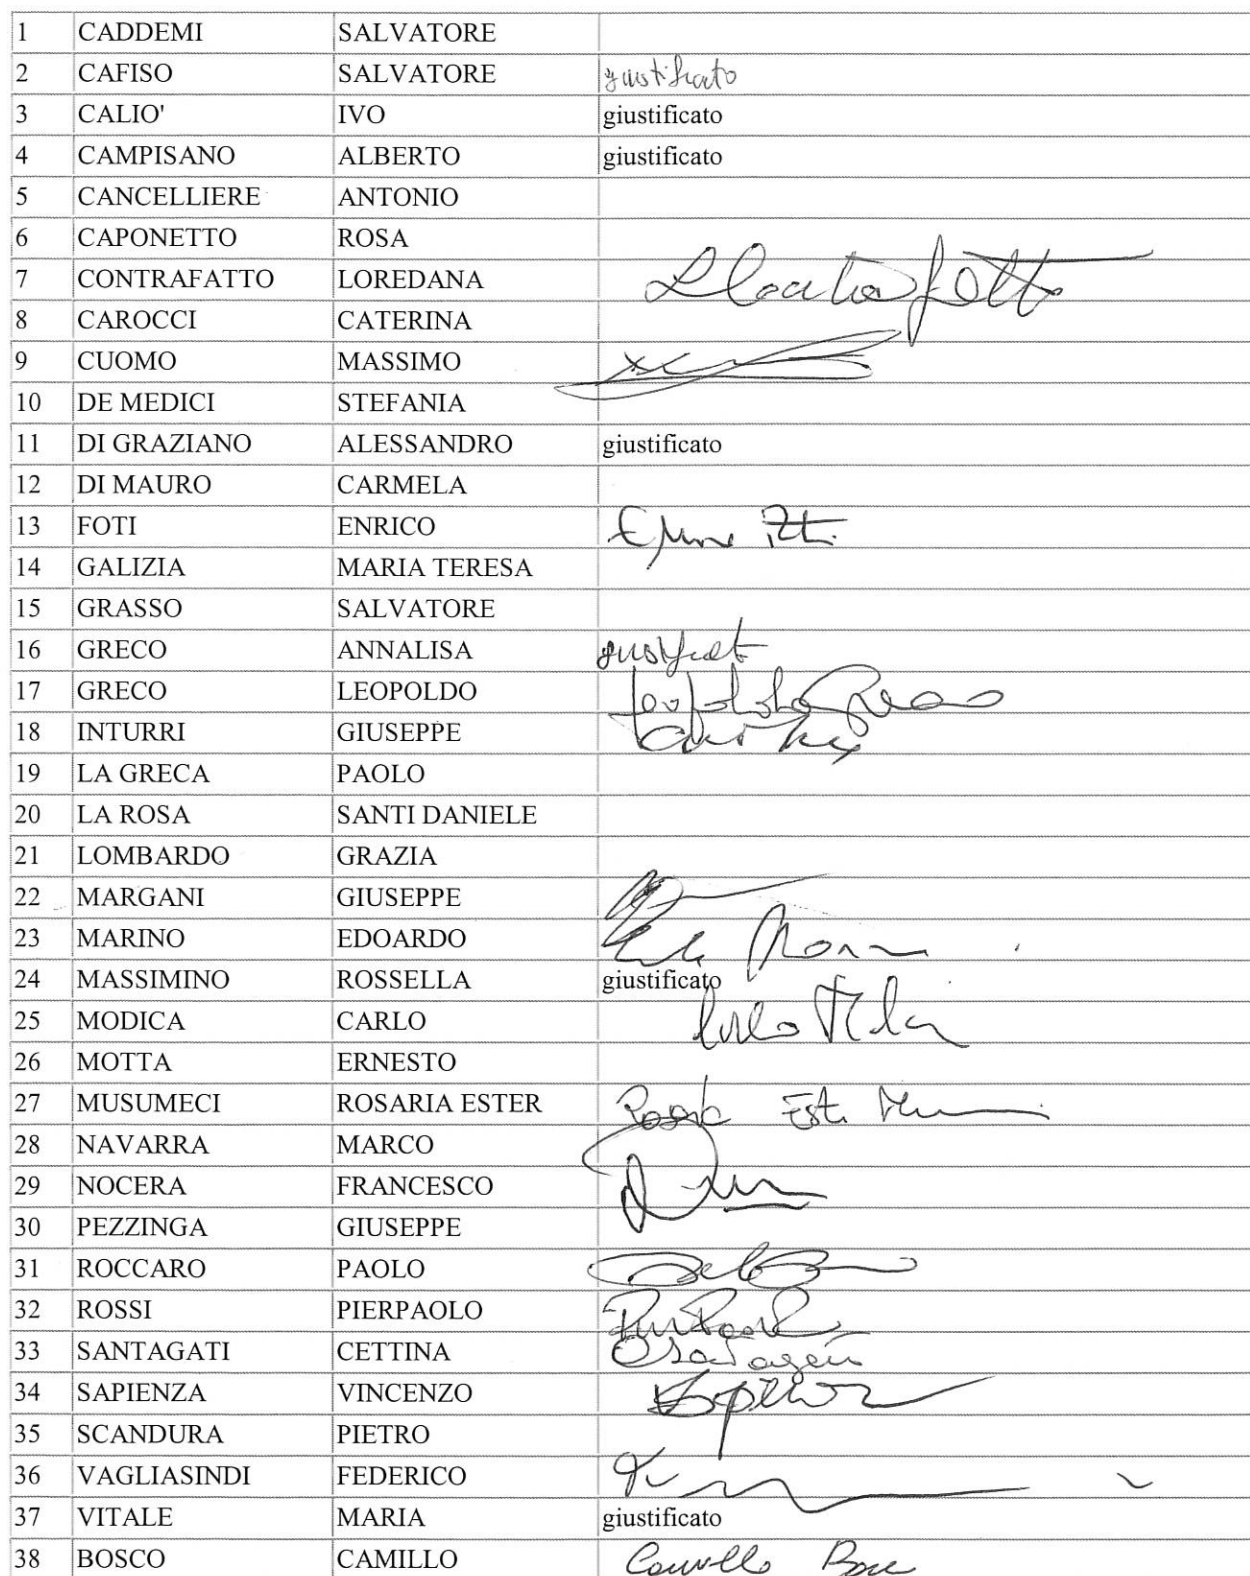 1 CADDEMI SALVATORE
2 CAFISO SALVATORE giustificato
3 CALIO' IVO giustificato
4 CAMPISANO ALBERTO giustificato
5 CANCELLIERE ANTONIO
6 CAPONETTO ROSA
7 CONTRAFATTO LOREDANA
8 CAROCCI CATERINA
9 CUOMO MASSIMO
10 DE MEDICI STEFANIA
11 DI GRAZIANO ALESSANDRO giustificato
12 DI MAURO CARMELA
13 FOTI ENRICO
14 GALIZIA MARIA TERESA
15 GRASSO SALVATORE
16 GRECO ANNALISA
17 GRECO LEOPOLDO Leopoldo Greco
18 INTURRI GIUSEPPE
19 LA GRECA PAOLO
20 LA ROSA SANTI DANIELE
21 LOMBARDO GRAZIA
22 MARGANI GIUSEPPE
23 MARINO EDOARDO
24 MASSIMINO ROSSELLA giustificato
25 MODICA CARLO
26 MOTTA ERNESTO
27 MUSUMECI ROSARIA ESTER
28 NAVARRA MARCO
29 NOCERA FRANCESCO
30 PEZZINGA GIUSEPPE
31 ROCCARO PAOLO
32 ROSSI PIERPAOLO
33 SANTAGATI CETTINA
34 SAPIENZA VINCENZO
35 SCANDURA PIETRO
36 VAGLIASINDI FEDERICO
37 VITALE MARIA giustificato
38 BOSCO CAMILLO Camillo Bosco